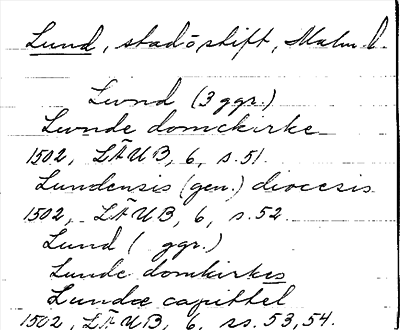 Lund, stad o stift, Malm. l.
Lund (3 ggr.)
Lunde domckirke
1502, LÄUB, 6, s. 51.
Lundensis (gen.) diocesis
1502, LÄUB, 6, s. 52.
Lund ( ggr.)
Lunde domkirkes
Lundæ capittel
1502, LÄUB, 6, ss. 53, 54.